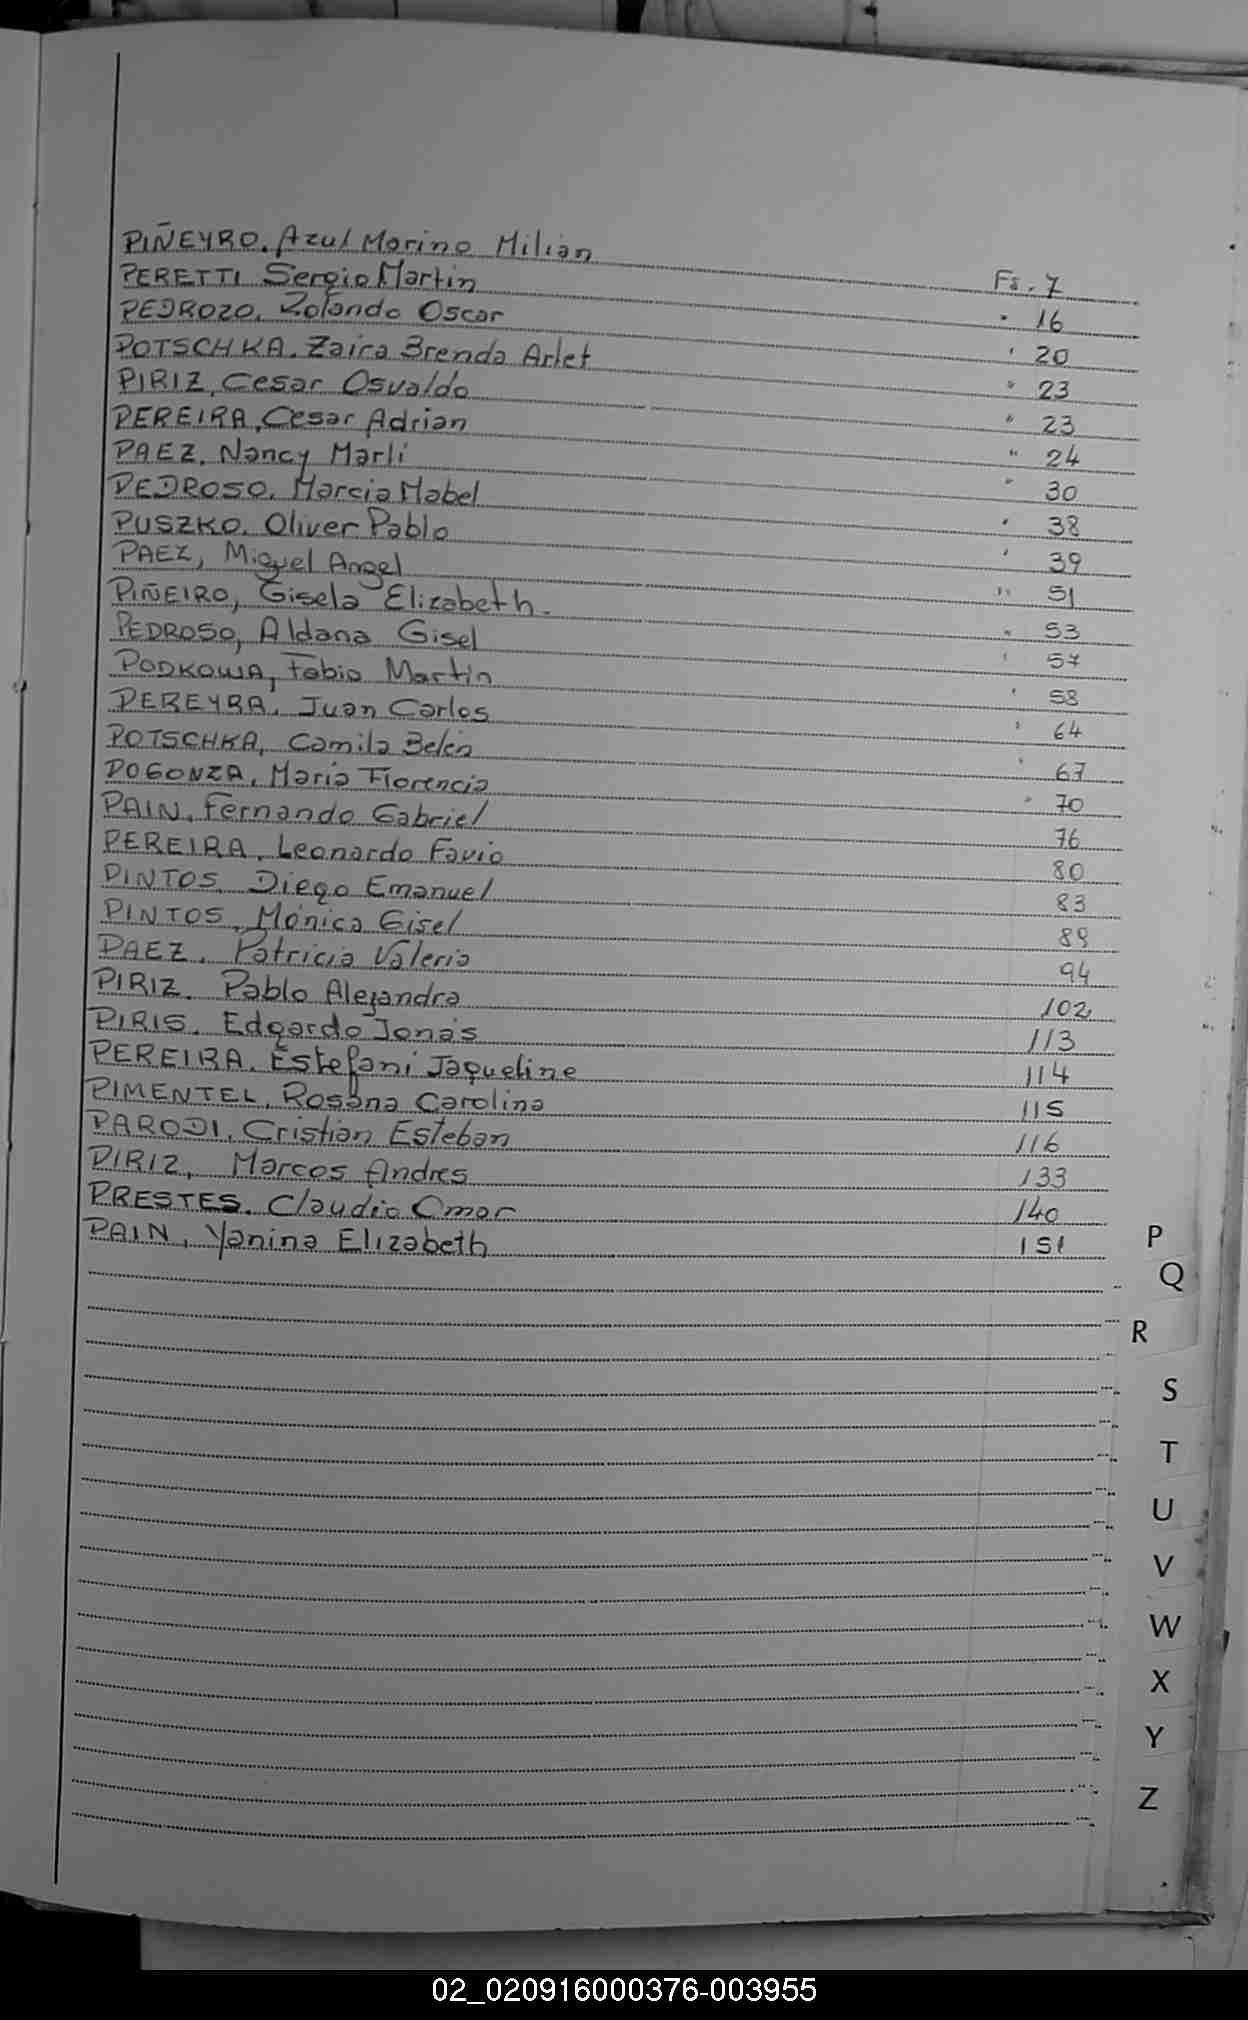 PIÑEYRO. Azul Morino Milian Fs. 7
PERETTI Sergio Martin " 16
PEDROZO. Rolando Oscar " 20
POTSCHKA. Zaira Brenda Arlet " 23
PIRIZ, Cesar Osvaldo " 23
PEREIRA, Cesar Adrian " 24
PAEZ. Nancy Marli " 30
PEDROSO. Marcia Mabel " 38
PUSZKO. Oliver Pablo " 39
PAEZ, Miguel Angel " 51
PIÑEIRO, Gisela Elizabeth. " 53
PEDROSO, Aldana Gisel " 57
PODKOWA, Fabio Martin " 58
PEREYRA, Juan Carlos " 64
POTSCHKA, Camila Belén " 67
POGONZA, Maria Florencia " 70
PAIN, Fernando Gabriel 76
PEREIRA, Leonardo Favio 80
PINTOS, Diego Emanuel 83
PINTOS, Mónica Gisel 89
PAEZ, Patricia Valeria 94
PIRIZ. Pablo Alejandro 102
PIRIS. Edgardo Jonás 113
PEREIRA. Estefani Jaqueline 114
PIMENTEL, Rosana Carolina 115
PARODI, Cristian Esteban 116
PIRIZ, Marcos Andres 133
PRESTES. Claudio Omar 140
PAIN, Yanina Elizabeth 151
P
Q
R
S
T
U
V
W
X
Y
Z
02_020916000376-003955